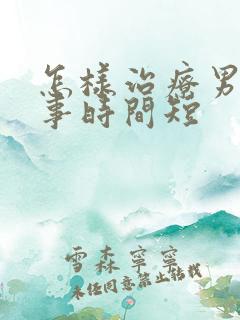 怎樣治療男
事時間短
雪森寧寧
未经同意禁止转载